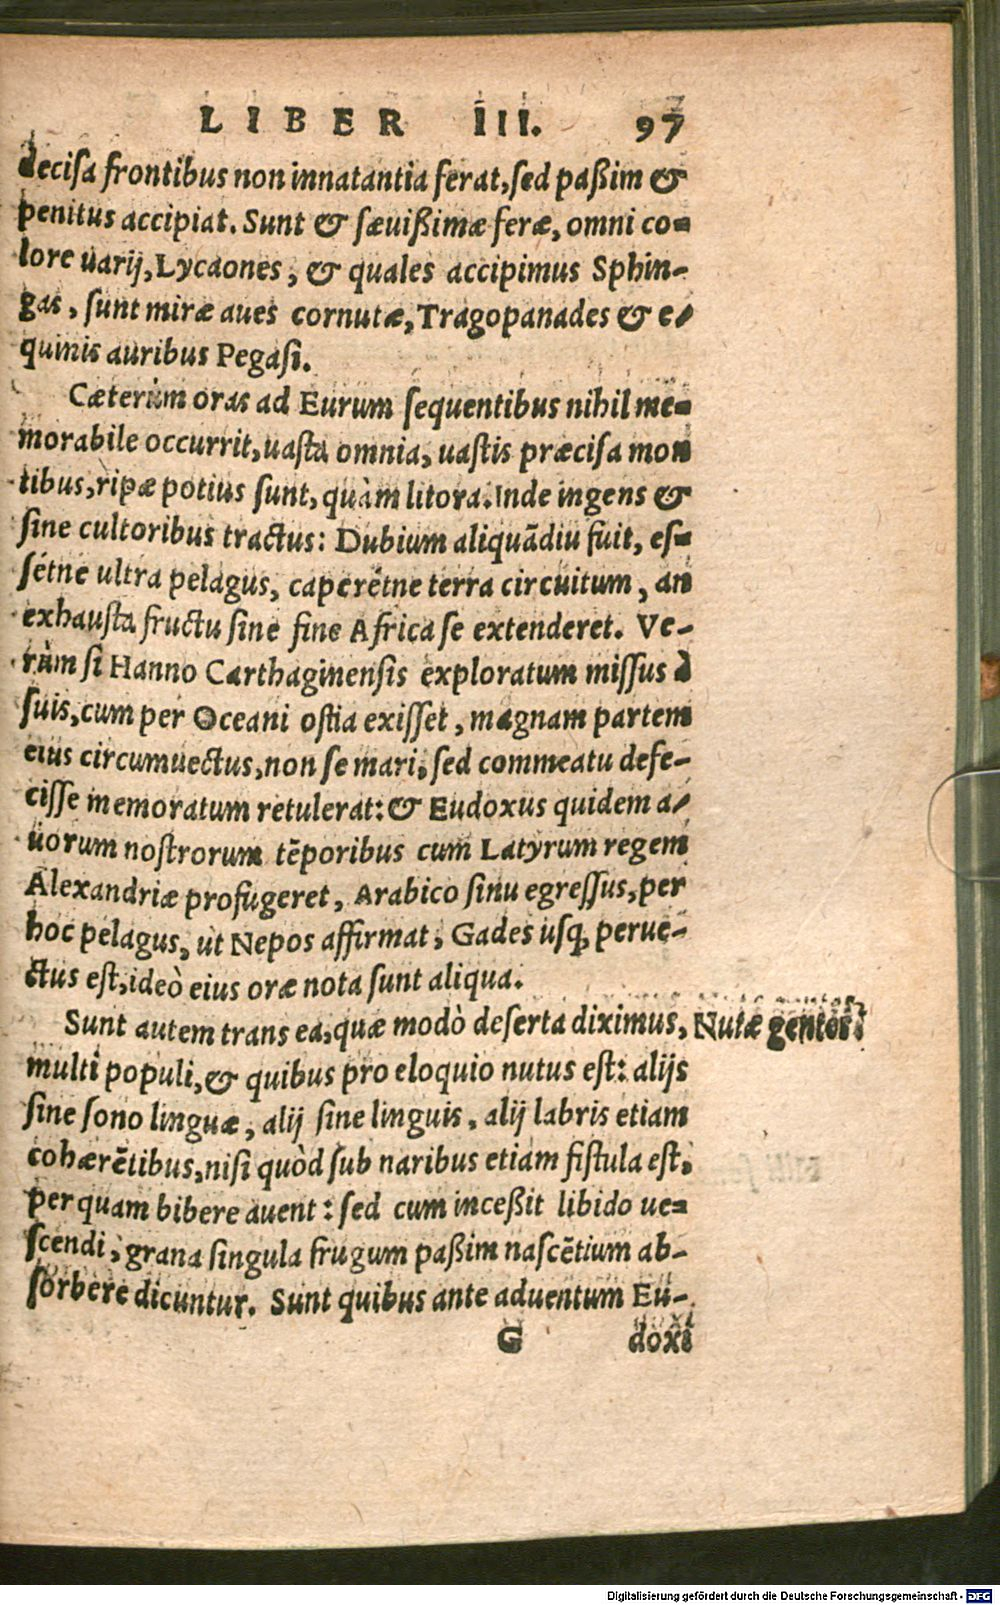 LIBER III. 97
deciſa frontibus non innatantia ferat, ſed paßim &
penitus accipiat. Sunt & ſæuißimæ feræ, omni co-
lore uarij, Lycaones, & quales accipimus Sphin-
gas, ſunt miræ aues cornutæ, Tragopanades & e-
quinis auribus Pegaſi.
Cæterùm oras ad Eurum ſequentibus nihil me-
morabile occurrit, uaſta omnia, uaſtis præciſa mon
tibus, ripæ potius ſunt, quàm litora. Inde ingens &
ſine cultoribus tractus: Dubium aliquãdiu fuit, eſ-
ſétne ultra pelagus, caperétne terra circuitum, an
exhauſta fructu ſine fine Africa ſe extenderet. Ve-
rùm ſi Hanno Carthaginenſis exploratum miſſus à
ſuis, cum per Oceani oſtia exiſſet, magnam partem
eius circumuectus, non ſe mari, ſed commeatu defe-
ciſſe memoratum retulerat: & Eudoxus quidem a-
uorum noſtrorum tẽporibus cum Latyrum regem
Alexandriæ profugeret, Arabico ſinu egreſſus, per
hoc pelagus, ut Nepos affirmat, Gades uſq; perue-
ctus eſt, ideò eius oræ nota ſunt aliqua.
Sunt autem trans ea, quæ modò deſerta diximus, Nutæ gentes.
multi populi, & quibus pro eloquio nutus eſt: alijs
ſine ſono linguæ, alij ſine linguis, alij labris etiam
cohærẽtibus, niſi quòd ſub naribus etiam fiſtula eſt,
per quam bibere auent: ſed cum inceßit libido ue-
ſcendi, grana ſingula frugum paßim naſcẽtium ab-
ſorbere dicuntur. Sunt quibus ante aduentum Eu-
G doxi
Digitalisierung gefördert durch die Deutsche Forschungsgemeinschaft - DFG